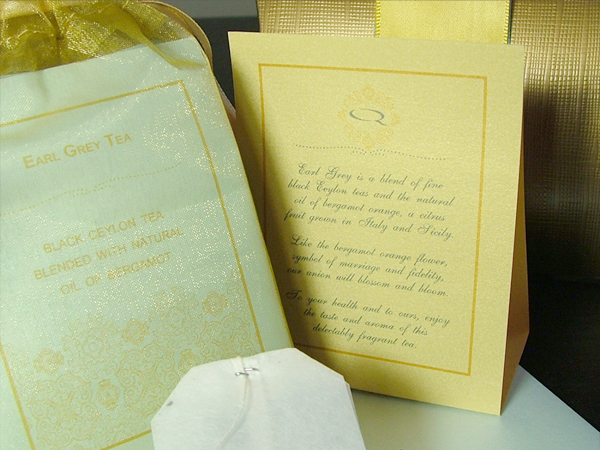 Earl Grey Tea
BLACK CEYLON TEA
BLENDED WITH NATURAL
OIL OF BERGAMOT
Q
Earl Grey is a blend of fine
black Ceylon teas and the natural
oil of bergamot orange, a citrus
fruit grown in Italy and Sicily.
Like the bergamot orange flower,
symbol of marriage and fidelity,
our union will blossom and bloom.
To your health and to ours, enjoy
the taste and aroma of this
delectably fragrant tea.